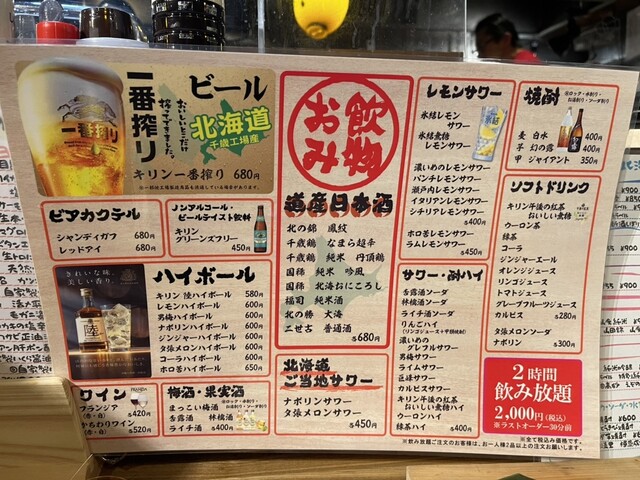 一番搾り
ビール
一番搾り
おいしいとこだけ
搾ってできました。
北海道
千歳工場産
キリン一番搾り 680円
ビアカクテル
シャンディガフ 680円
レッドアイ 680円
ノンアルコール・
ビールテイスト飲料
キリン
グリーンズフリー
450円
きれいな味、
美しい香り。
陸
ハイボール
キリン 陸ハイボール 580円
レモンハイボール 600円
男梅ハイボール 600円
ナポリンハイボール 600円
ジンジャーハイボール 600円
夕張メロンハイボール 600円
コーラハイボール 600円
ホロ苦ハイボール 650円
ワイン
フランジア
(赤・白) 各420円
かちわりワイン
(赤・白) 各520円
梅酒・果実酒
※ロック・水割り・
お湯割り・ソーダ割り
まっこい梅酒
杏露酒 林檎酒
ライチ酒 各400円
飲物
おみ
道産日本酒
北の錦 鳳紋
千歳鶴 なまら超辛
千歳鶴 純米 丹頂鶴
国稀 純米 吟風
国稀 北海おにころし
福司 純米酒
北の勝 大海
二世古 普通酒
各680円
北海道
ご当地サワー
ナポリンサワー
夕張メロンサワー
各450円
レモンサワー
氷結レモン
サワー
氷結無糖
レモン
サワー
濃いめのレモンサワー
パンチレモンサワー
瀬戸内レモンサワー
イタリアンレモンサワー
シチリアレモンサワー
各400円
ホロ苦レモンサワー
ラムレモンサワー
各450円
サワー・酎ハイ
杏露酒ソーダ
林檎酒ソーダ
ライチ酒ソーダ
りんごハイ
(リンゴジュース+甲類焼酎)
濃いめの
グレフルサワー
男梅サワー
ライムサワー
巨峰サワー
カルピスサワー
キリン午後の紅茶
おいしい無糖ハイ
ウーロンハイ
緑茶ハイ 各400円
焼酎
※ロック・水割り・
お湯割り・ソーダ割り
麦 白水 400円
芋 幻の露 400円
甲 ジャイアント 350円
ソフトドリンク
キリン午後の紅茶
おいしい無糖
ウーロン茶
緑茶
コーラ
ジンジャーエール
オレンジジュース
リンゴジュース
トマトジュース
グレープフルーツジュース
カルピス 各280円
夕張メロンソーダ
ナポリン 各300円
2時間
飲み放題
2,000円(税込)
※ラストオーダー30分前
※全て税込み価格です。
※飲み放題ご注文のお客様は、お一人様2品以上の注文お願いします。